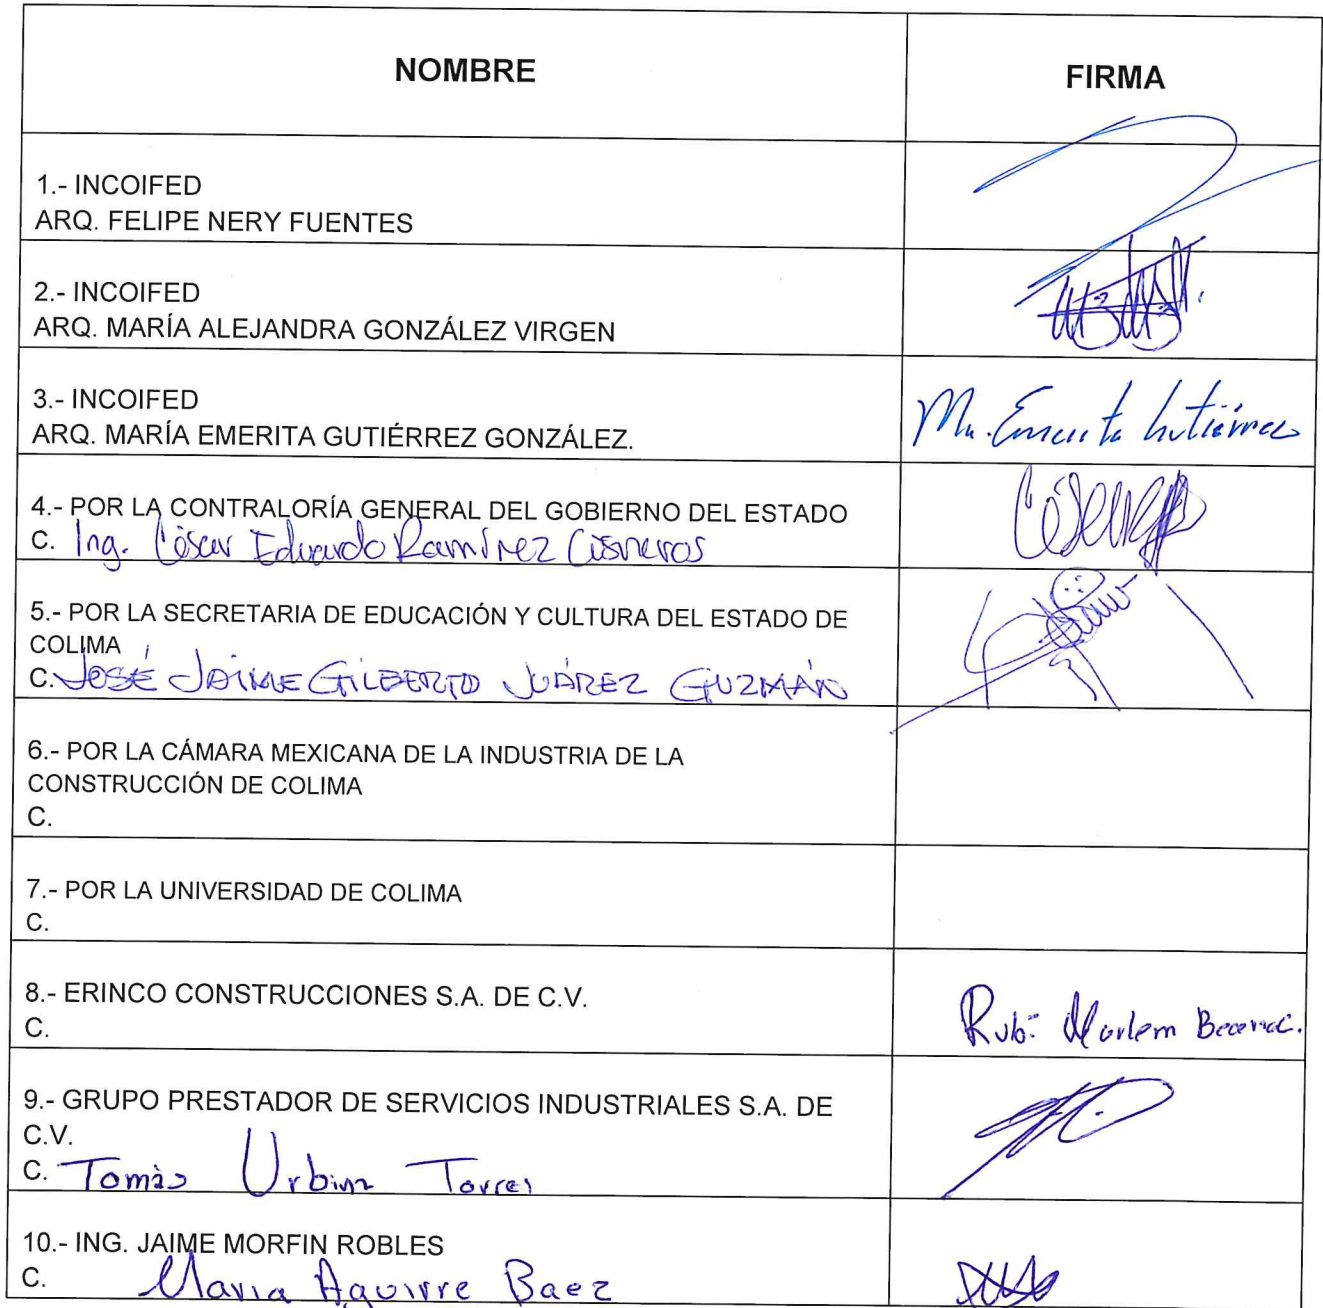 NOMBRE FIRMA
1.- INCOIFED
ARQ. FELIPE NERY FUENTES
2.- INCOIFED
ARQ. MARÍA ALEJANDRA GONZÁLEZ VIRGEN
3.- INCOIFED
ARQ. MARÍA EMERITA GUTIÉRREZ GONZÁLEZ.
Ma. Emerita Gutiérrez
4.- POR LA CONTRALORÍA GENERAL DEL GOBIERNO DEL ESTADO
C. Ing. César Eduardo Ramírez Cisneros
5.- POR LA SECRETARIA DE EDUCACIÓN Y CULTURA DEL ESTADO DE
COLIMA
C. JOSÉ JAIME GILBERTO JUÁREZ GUZMÁN
6.- POR LA CÁMARA MEXICANA DE LA INDUSTRIA DE LA
CONSTRUCCIÓN DE COLIMA
C.
7.- POR LA UNIVERSIDAD DE COLIMA
C.
8.- ERINCO CONSTRUCCIONES S.A. DE C.V.
C.
Rubí Marlem Becerra.
9.- GRUPO PRESTADOR DE SERVICIOS INDUSTRIALES S.A. DE
C.V.
C. Tomás Urbina Torres
10.- ING. JAIME MORFIN ROBLES
C. Maria Aguirre Baez